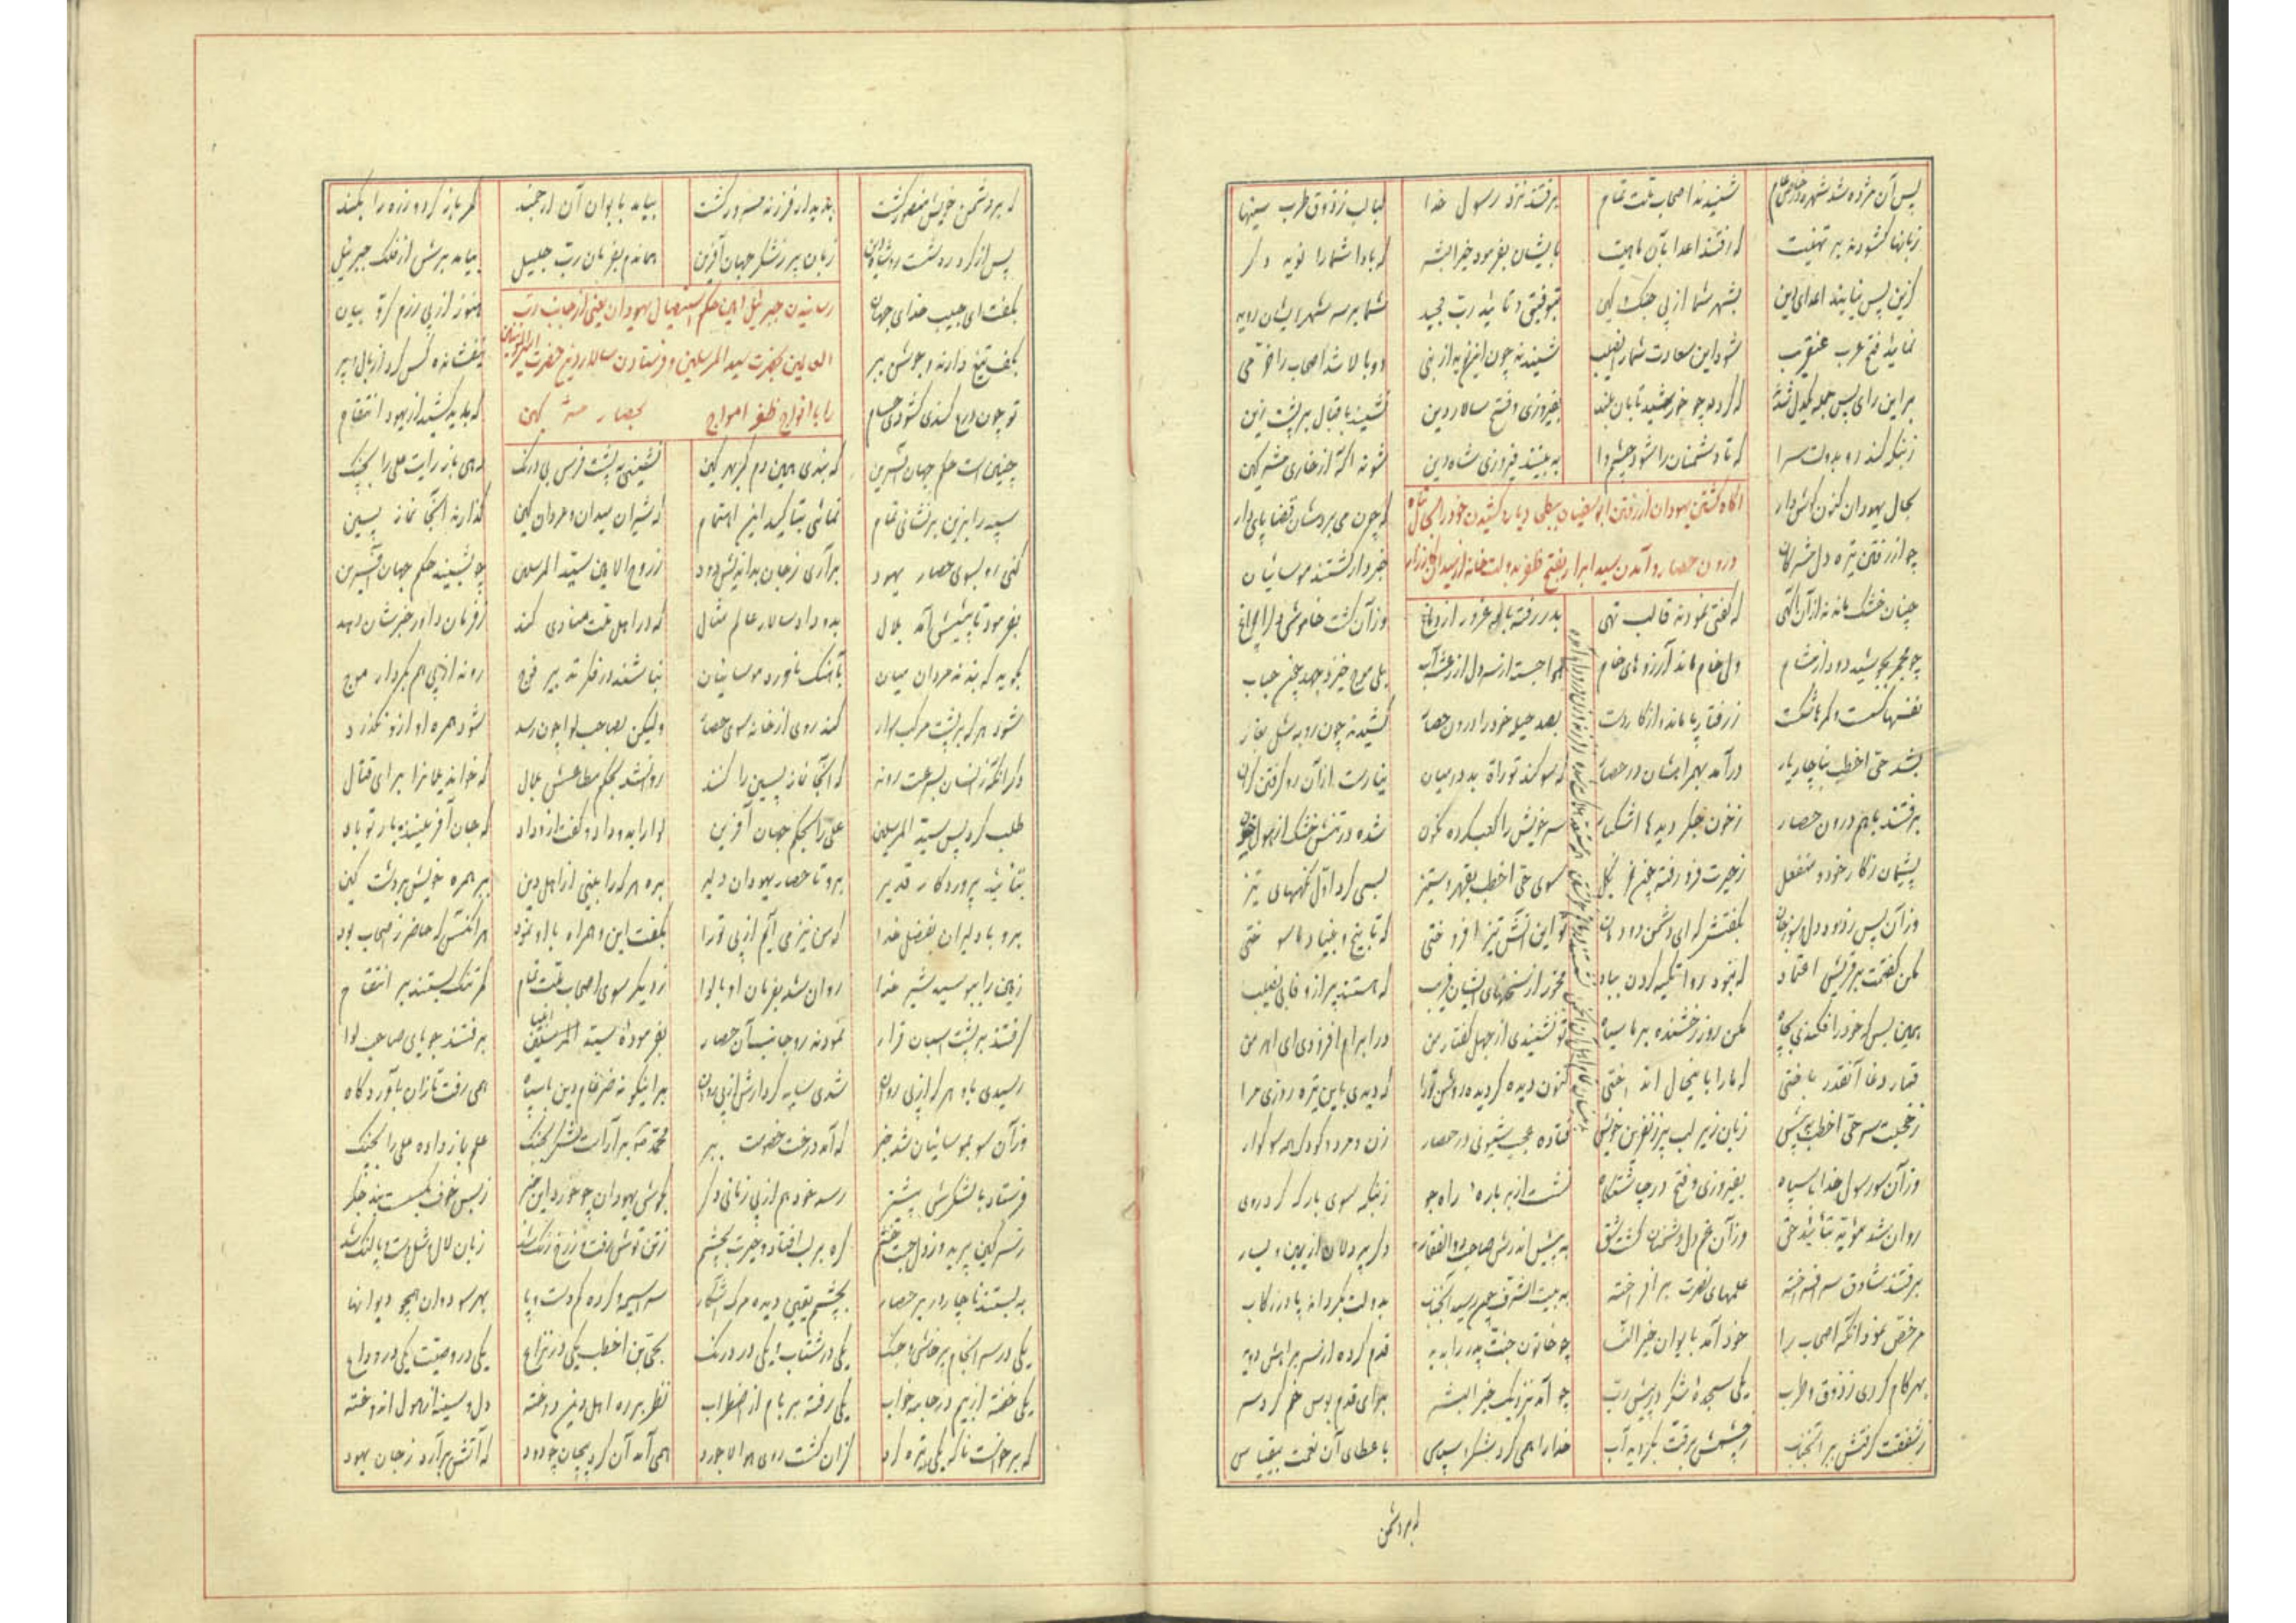 پس آن مژده شد شهره در خاص و عام شنیدند اصحاب ملت تمام برفتند نزد رسول خدا لبالب ز ذوق طرب سینها
زبانها کشودند بر تهنیت که رفتند اعدا بآن ناهیت بایشان بفرمود خیرالبشر که بادا شما را نوید دگر
کزین پس نیایند اعدای دین بشهر شما از پی جنک و کین بتوفیق و تائید رب مجید شما بر سر شهر ایشان روید
نمایید فتح عرب عنقریب شود این سعادت شما را نصیب شنیدند چون این نوید از نبی دوبالا شد اصحاب را خرمی
بر این رای پس جمله یکدل شدند که گردد چو خورشید تابان بلند بفیروزی و فتح سالار دین نشیند باقبال بر پشت زین
ز جنگه کند رو بدولت سرا که تا دشمنان را شود چشم وا به بینند فیروزی شاه دین شوند آگه از خاری مشرکین
آگاه کشتن یهودان از رفتن ابوسفیان و کشیدن خود را بحال تباه
درون حصار و آمدن سید ابرار بفتح و ظفر بدولت خانه از میدان کارزار
بحال یهودان کنون گوش دار که چون می بردشان قضا پای دار
چو از رفتن تیره دل مشرکان خبردار گشتند موسائیان
چنان خشک ماندند از آن آگهی که گفتی نمودند قالب تهی بدر رفته باد غرور از دماغ وز آن گشت خاموش دل را چراغ
چو مجمر بجوشید دود از مشام ولی خام ماند آرزوهای خام هوا جسته از سر دل از رعشه آب بلی موج خیزد جهد چون حباب
نفسها گسست و کمرها شکست ز رفتار پا ماند و از کار دست بصد حیله خود را درون حصار کشیدند چون روبه شل بغار
بشد حی اخطب بناچار یار درآمد بهمراهشان در حصار که سوگند توراة بد در میان نیارست از آن رو گرفتن کران
برفتند باهم درون حصار ز خون جگر دیدها اشکبار سر خویش را کعب کرده نگون شده در تنش خشک از هول خون
پشیمان ز کار خود و منفعل ز حیرت فرو رفته چون خر بگل سوی حی اخطب بقهر و ستیز بسی کرد اول نگههای تیز
وز آن پس ز دود دل و سوز جان بگفتش که ای دشمن دودمان تو این آتش تیز افروختی که تا بیخ و بنیاد ما سوختی
نگفتمت بر قریش اعتماد که نبود روا تکیه کردن بباد مخور از سخنهای ایشان فریب که هستند پر از وفا بی نصیب
همین بس که خود را فکندی بچاه مکن روز رخشنده بر ما سیاه تو نشنیدی از جهل گفتار من در ابرام افزودی ای اهرمن
قمار دغا آنقدر باختی که ما را باینحال انداختی کنون دیده گردیده روشن تو را که دیدی باین تیره روزی مرا
ز خجلت سر حی اخطب به پیش زبان زیر لب پر ز نفرین خویش فتاده عجب شیونی در حصار زن و مرد و کودک همه سوکوار
وز آن سو رسول خدا با سپاه بفیروزی و فتح در چاشتگاه نشست از بر باره راه جو ز جنگه سوی بارگه کرد روی
روان شد مؤید بتائید حق وز آن غم دل دشمنان گشت شق به پیش اندرش صاحب ذوالفقار دگر پردلان از یمین و یسار
برفتند شادان سر افراخته علمهای نصرت برافراخته به بیت الشرف چون رسید آنجناب بدولت بگرداند پا در رکاب
مرخص نمود آنگه اصحاب را خود آمد بایوان خیرالنسا چو خاتون جنت پدر را بدید قدم کرده از سر براهش دوید
بهر گام کردی ز ذوق و طرب یکی سجده شکر در پیش رب چو آمد بنزدیک خیرالبشر برای قدم بوس خم کرد سر
ز شفقت گرفتش ببر آنجناب ز چشمش برقت بگردید آب خدا را همی کرد شکر و سپاس باعطای آن نعمت بیقیاس
که بر دشمن
که بر دشمن خویش منصور گشت بدیدار فرزند مسرور گشت بیامد بایوان آن ارجمند کمر باز کرد و زره را بکند
پس از گرد ره شست رو شاه دین زبان پر ز شکر جهان آفرین هماندم بفرمان رب جلیل بیامد برش از فلک جبرئیل
رسانیدن جبرئیل امین حکم استیصال یهودان یعنی از جانب رب
العالمین بحضرت سید المرسلین و فرستادن سالار دین حضرت امیرالمؤمنین
را با افواج ظفر امواج بحصار کین
بگفت ای حبیب خدای جهان هنوز از پی رزم کروبیان
بکف تیغ دارند و جوشن ببر نیفشانده کس گرد از بال و پر
تو چون درع کندی گشودی حسام که باید کشید از یهود انتقام
چنین است حکم جهان آفرین که بندی همین دم کمر بهر کین نشینی به پشت فرس بی درنگ دهی باز رایت علی را بجنک
سپه را بزین بر نشانی تمام نمائی بتاکید این اهتمام که شیران میدان و مردان کین گذارند آنجا نماز پسین
کنی رو بسوی حصار یهود برآری ز جان بداندیش دود ز روح الامین سید المرسلین چو بشنید حکم جهان آفرین
بفرمود تا پیشش آمد بلال بدو داد سالار عالم مثال که در اهل ملت منادی کند ز فرمان داور خبرشان دهد
بگوید که بندند مردان میان باهنگ ناورد موسائیان نباشند در فکر ترتیب فوج روند از پی هم بکردار موج
شود هر که بر پشت مرکب سوار کند روی از خانه سوی حصار ولیکن بصاحب لوا چون رسد شود همره او ازو نگذرد
دگر آنکه زانسان بسرعت روند که آنجا نماز پسین را کنند روان شد بحکم مطاعش بلال که خواند یلانرا برای قتال
طلب کرد پس سید المرسلین علی را بحکم جهان آفرین لوا را بدو داد و گفت از وداد که جان آفریننده یار تو باد
بتائید پروردگار قدیر برو تا حصار یهودان دلیر بره هر که را بینی از اهل دین ببر همره خویش بر دشت کین
برو با دلیران بفضل خدا که من نیز می آیم از پی تو را بگفت این و همراه با او نمود هر آنکس که حاضر ز اصحاب بود
زمین را ببوسید شیر خدا روان شد بفرمان او با لوا ز دیگر سوی اصحاب ملت تمام کمر تنک بستند بر انتقام
گرفتند بر پشت اسبان قرار نمودند رو جانب آن حصار بفرموده سید انبیا برفتند جویای صاحب لوا
رسیدی باو هر که از پی روان شدی سایه کردارش از پی روان بر اینگونه ضرغام دین با سپاه همی رفت تازان بآوردگاه
وز آن سو بموسائیان شد خبر که آمد درخت خصومت ببر محمد بیاراست لشکر بجنک علم باز داده علی را بجنک
فرستاد با لشکرش پیشتر رسد خود هم از پی زمانی دگر بگوش یهودان چو خورد این خبر ز بس خوف بگسست بند جگر
ز سر کین پرید و ز دل جست خشم گره بر لب افتاد و حیرت بچشم ز تن توش رفت و ز رخ رنگ شد زبان لال و شل دست و پا لنگ شد
به بستند ناچار در بر حصار بچشم یقین دیده مرگ آشکار سراسیمه و کرده گم دست و پا بهر سو دوان همچو دیوانها
یکی در سرانجام پرخاش و جنگ یکی در شتاب و یکی در درنگ بحی بن اخطب یکی در نزاع یکی در وصیت یکی در وداع
یکی خفته از بیم در جامه خواب یکی رفته بر بام از اضطراب نظر بر ره اهل دین دوخته دل و سینه از هول اندوخته
که برخواست ناگه یکی تیره گرد کزان گشت روی هوا لاجورد همی آمد آن گرد پیچان چو دود که آتش برآرد ز جان یهود